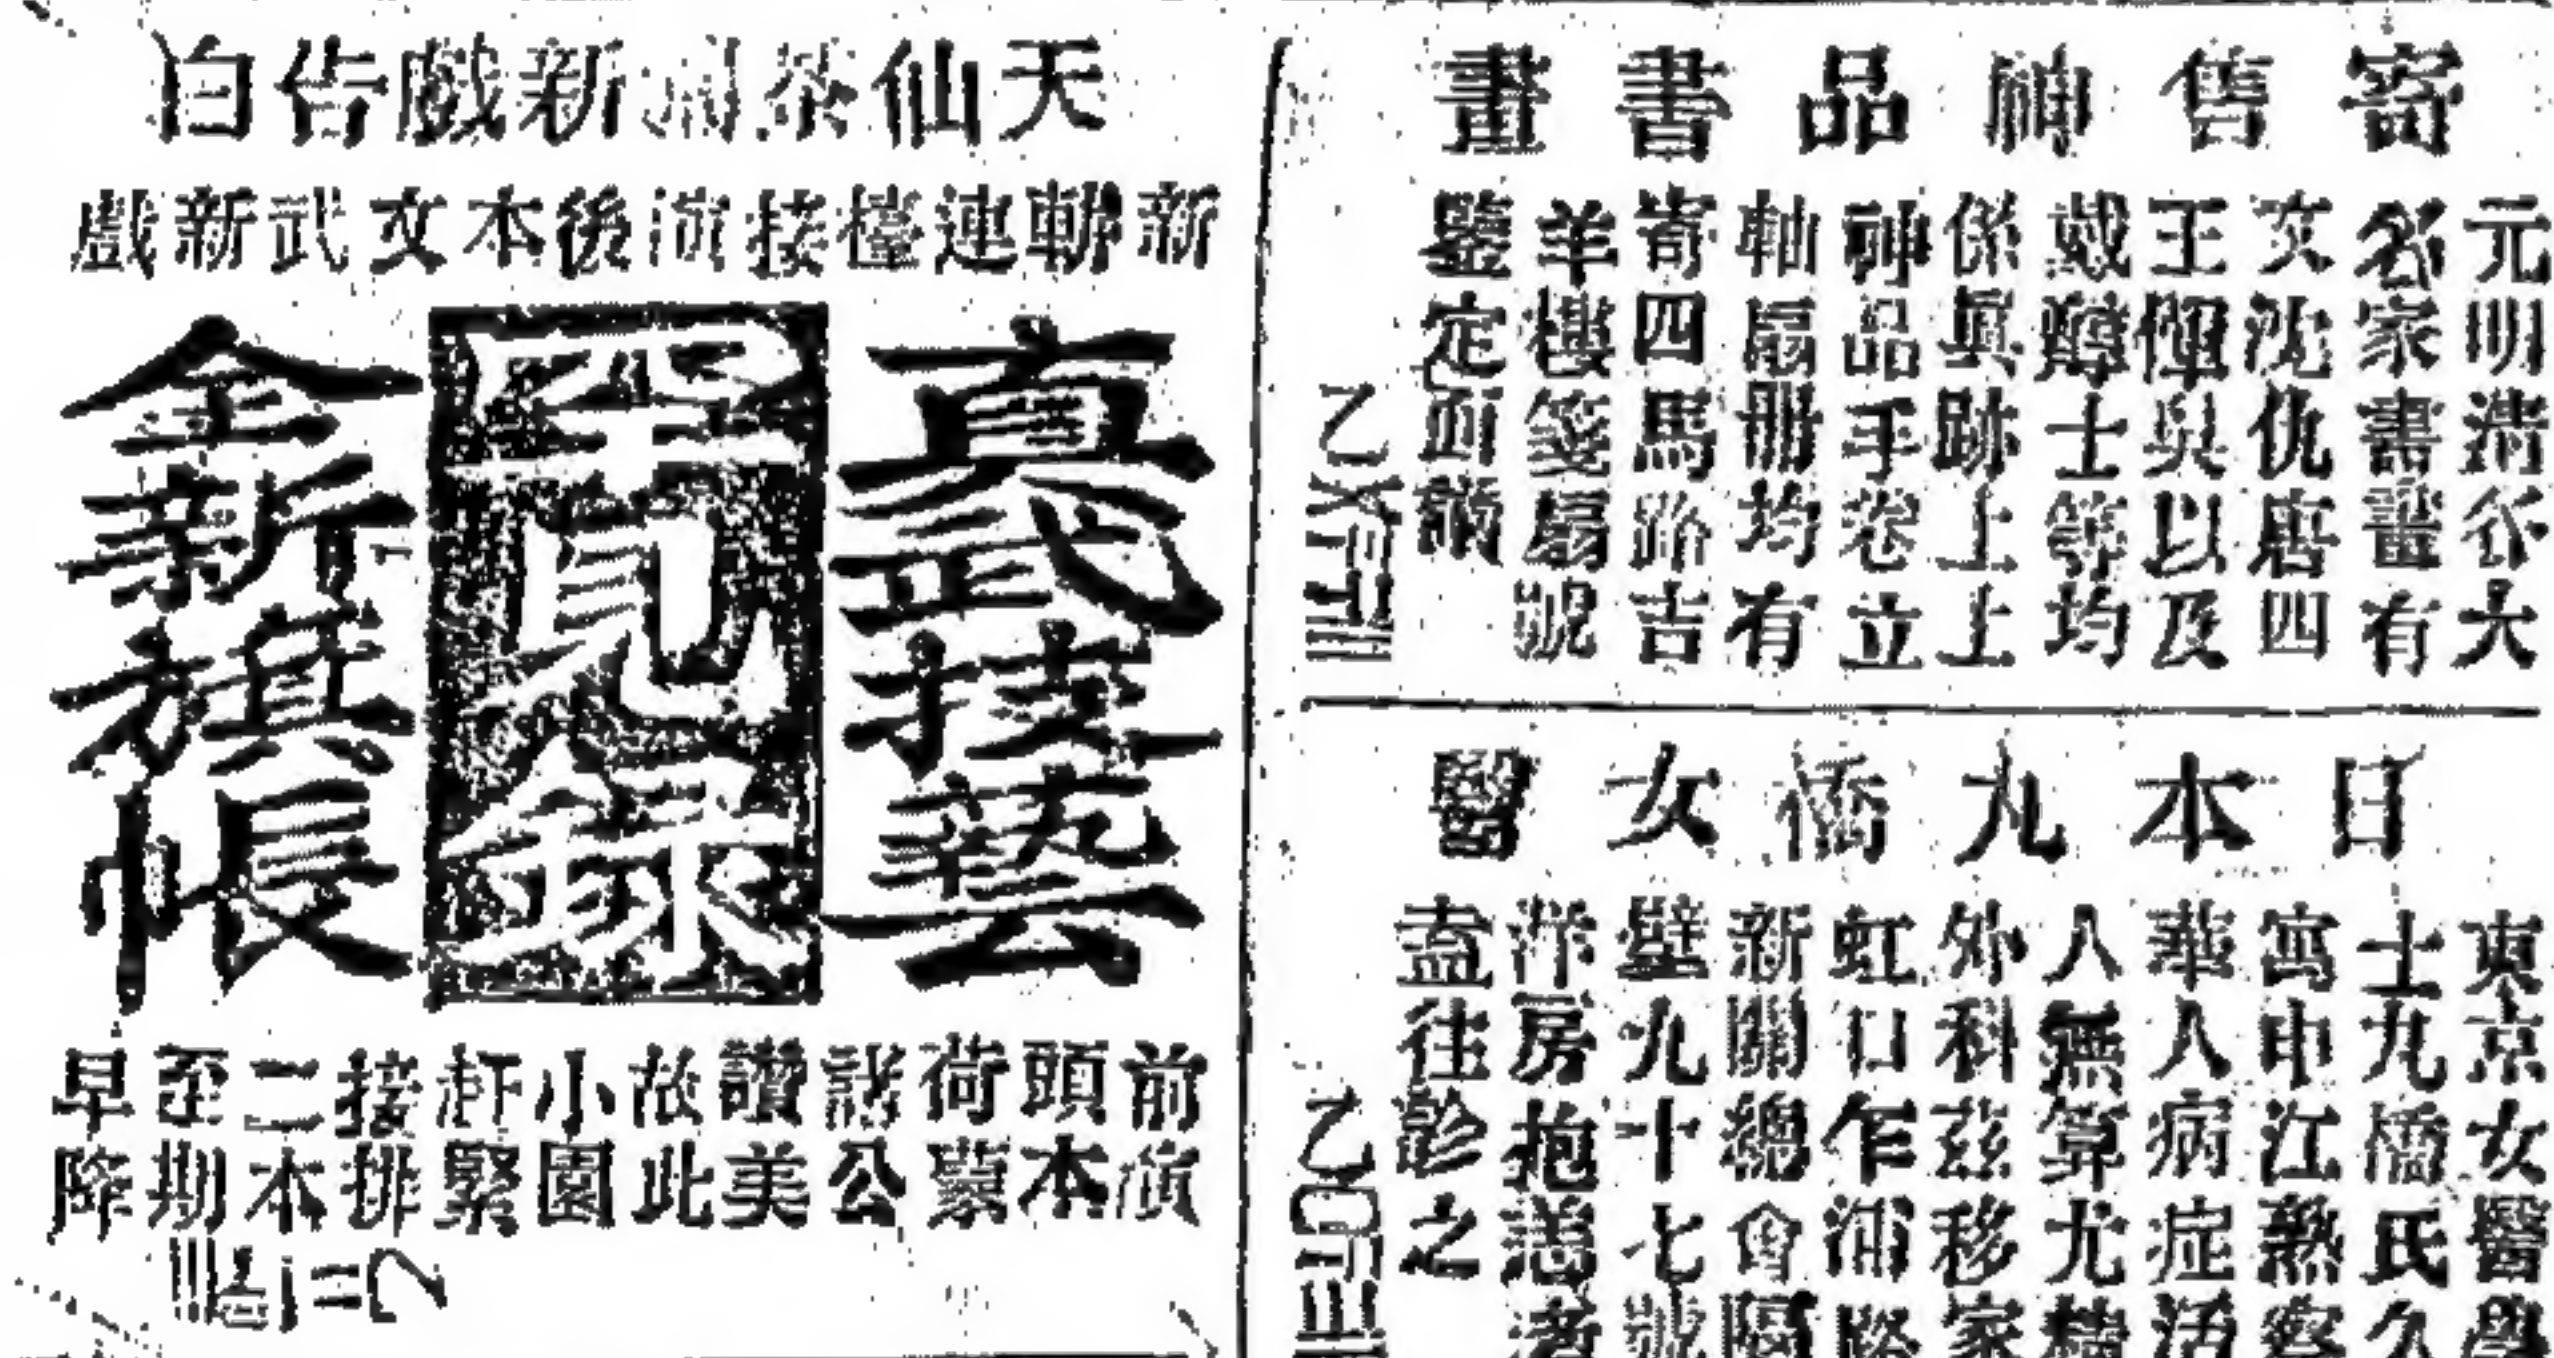 寄售神品書畫
元明清各大
名家書畫有
文沈仇唐四
王惲吳以及
戴醇士等均
係眞跡上上
神品手卷立
軸扇冊均有
寄四馬路吉
羊樓箋扇號
鑒定面議
日本九橋女醫
東京女醫學
士九橋氏久
寓申江熟察
華人病症活
人無算尤精
外科茲移家
虹口乍浦路
新關總會隔
壁九十七號
洋房抱恙者
盍往診之
天仙茶園新戲告白
新嶄連檯接演後本文武新戲
真武技藝
見錄
全新旗帳
前演
頭本
荷蒙
諸公
讚美
故此
小園
赶緊
接排
二本
至期
早降